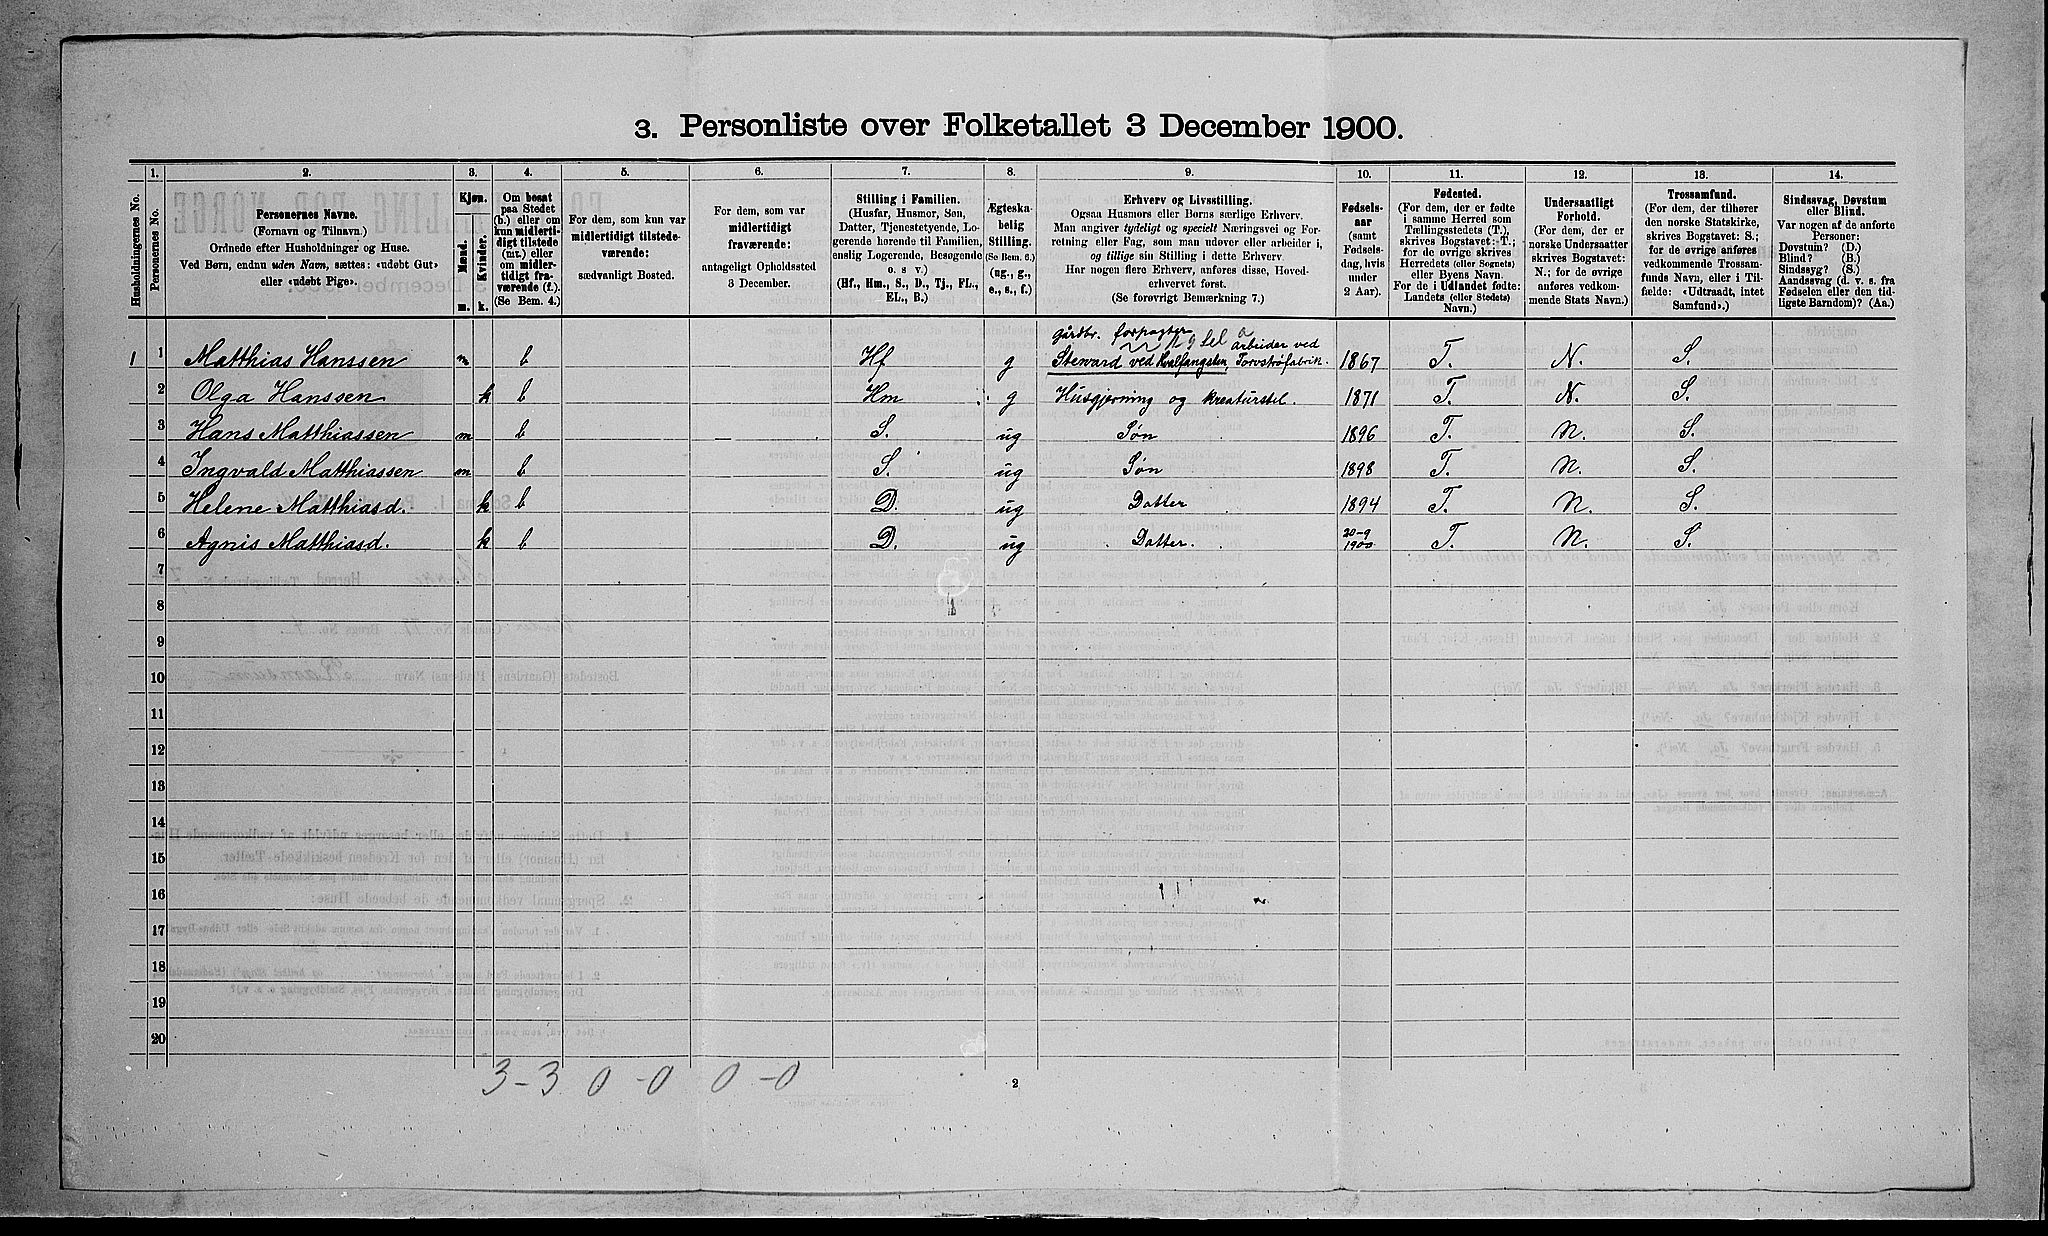 3. Personliste over Folketallet 3 December 1900.
Husholdningernes No.
1.
Personernes No.
2.
Personernes Navne.
(Fornavn og Tilnavn.)
Ordnede efter Husholdninger og Huse.
Ved Børn, endnu uden Navn, sættes: «udøbt Gut»
eller «udøbt Pige».
3.
Kjøn.
Mænd.
Kvinder.
m. k.
4.
Om bosat
paa Stedet
(b.) eller om
kun midlerti-
digt tilstede
(mt.) eller
om midler-
tidigt fra-
værende (f.)
(Se Bem. 4.)
5.
For dem, som kun var
midlertidigt tilstede-
værende:
sædvanligt Bosted.
6.
For dem, som var
midlertidigt
fraværende:
antageligt Opholdssted
3 December.
7.
Stilling i Familien.
(Husfar, Husmor, Søn,
Datter, Tjenestetyende, Lo-
gerende hørende til Familien,
enslig Logerende, Besøgende
o. s v.)
(Hf., Hm., S., D., Tj., FL.,
EL., B.)
8.
Ægteska-
belig
Stilling.
(Se Bem. 6.)
(ug., g.,
e., s., f.)
9.
Erhverv og Livsstilling.
Ogsaa Husmors eller Børns særlige Erhverv.
Man angiver tydeligt og specielt Næringsvei og For-
retning eller Fag, som man udøver eller arbeider i,
og tillige sin Stilling i dette Erhverv.
Har nogen flere Erhverv, anføres disse, Hoved-
erhvervet først.
(Se forøvrigt Bemærkning 7.)
10.
Fødsels-
aar
(samt
Fødsels-
dag, hvis
under
2 Aar).
11.
Fødested.
(For dem, der er fødte
i samme Herred som
Tællingsstedets (T.),
skrives Bogstavet: T.;
for de øvrige skrives
Herredets (eller Sognets)
eller Byens Navn.
For de i Udlandet fødte:
Landets (eller Stedets)
Navn.)
12.
Undersaatligt
Forhold.
(For dem, der er
norske Undersaatter
skrives Bogstavet:
N.; for de øvrige
anføres vedkom-
mende Stats Navn.)
13.
Trossamfund.
(For dem, der tilhører
den norske Statskirke,
skrives Bogstavet: S.;
for de øvrige anføres
vedkommende Trossam-
funds Navn, eller i Til-
fælde: «Udtraadt, intet
Samfund».)
14.
Sindssvag, Døvstum
eller Blind.
Var nogen af de anførte
Personer:
Døvstum? (D.)
Blind? (B.)
Sindssyg? (S.)
Aandssvag (d. v. s. fra
Fødselen eller den tid-
ligste Barndom)? (Aa.)
gårdbr. forpagter
arbeider ved
1 1 Matthias Hanssen m b Hf g Steward ved Hvalfangsten, Torvstrøfabrik. 1867 T. N. S.
2 Olga Hanssen k b Hm g Husgjerning og kreaturstel. 1871 T. N. S.
3 Hans Matthiassen m b S. ug Søn 1896 T. N. S.
4 Ingvald Matthiassen m b S. ug Søn 1898 T. N. S.
5 Helene Matthiasd. k b D. ug Datter 1894 T. N. S.
6 Agnis Matthiasd. k b D. ug Datter. 20-9 1900 T. N. S.
7
8
9
10
11
12
13
14
15
16
17
18
19
20
3-3 0-0 0-0
2